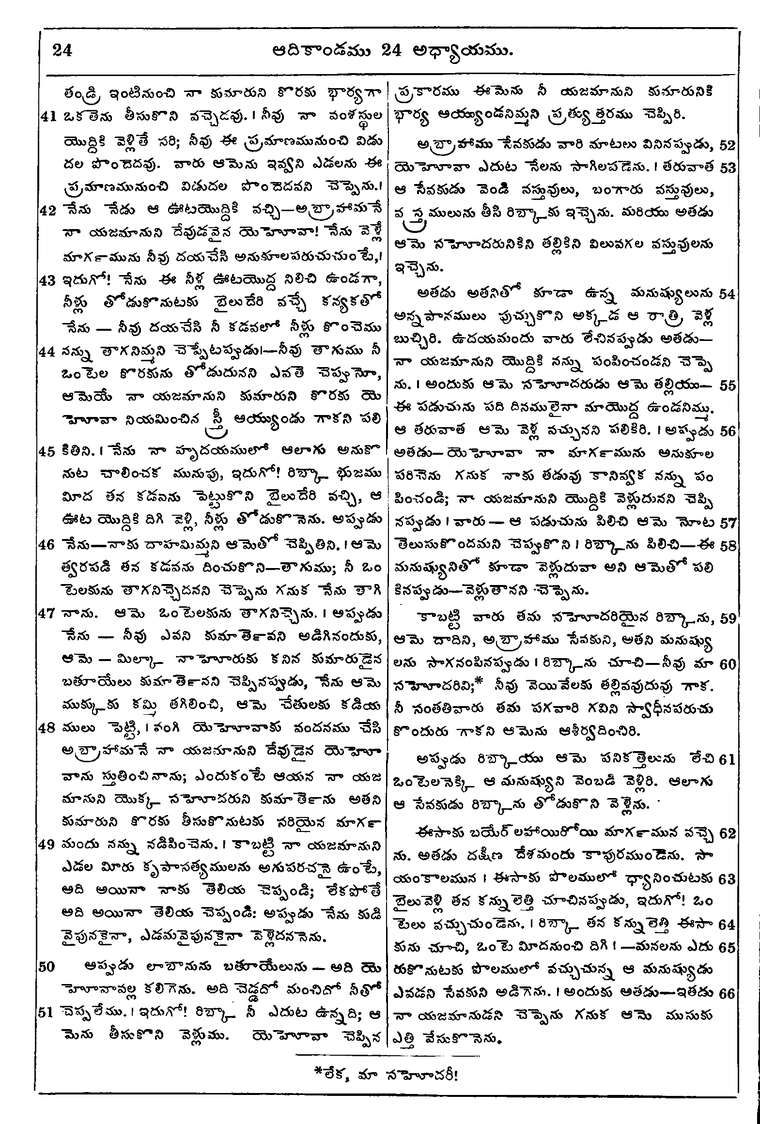 24 ఆదికాండము 24 అధ్యాయము.
తండ్రి ఇంటినుంచి నా కుమారుని కొరకు భార్యగా
41 ఒకతెను తీసుకొని వచ్చెదవు. । నీవు నా వంశస్థుల
యొద్దికి వెళ్లితే సరి; నీవు ఈ ప్రమాణమునుంచి విడు
దల పొందెదవు. వారు ఆమెను ఇవ్వని ఎడలను ఈ
ప్రమాణమునుంచి విడుదల పొందెదవని చెప్పెను.।
42 నేను నేడు ఆ ఊటయొద్దికి వచ్చి—అబ్రాహామనే
నా యజమానుని దేవుడవైన యెహోవా! నేను వెళ్లే
మార్గమును నీవు దయచేసి అనుకూలపరుచుచుంటే,।
43 ఇదుగో! నేను ఈ నీళ్ల ఊటయొద్ద నిలిచి ఉండగా,
నీళ్లు తోడుకొనుటకు బైలుదేరి వచ్చే కన్యకతో
నేను — నీవు దయచేసి నీ కడవలో నీళ్లు కొంచెము
44 నన్ను తాగనిమ్మని చెప్పేటప్పుడు।—నీవు తాగుము నీ
ఒంటెల కొరకును తోడుదునని ఎవతె చెప్పునో,
ఆమెయే నా యజమానుని కుమారుని కొరకు యె
హోవా నియమించిన స్త్రీ అయ్యుండు గాకని పలి
45 కితిని. । నేను నా హృదయములో ఆలాగు అనుకొ
నుట చాలించక మునుపు, ఇదుగో! రిబ్కా భుజము
మీద తన కడవను పెట్టుకొని బైలుదేరి వచ్చి, ఆ
ఊట యొద్దికి దిగి వెళ్లి, నీళ్లు తోడుకొనెను. అప్పుడు
46 నేను—నాకు దాహమిమ్మని ఆమెతో చెప్పితిని. । ఆమె
త్వరపడి తన కడవను దించుకొని—తాగుము; నీ ఒం
టెలకును తాగనిచ్చెదనని చెప్పెను గనుక నేను తాగి
47 నాను. ఆమె ఒంటెలకును తాగనిచ్చెను. । అప్పుడు
నేను — నీవు ఎవని కుమార్తెవని అడిగినందుకు,
ఆమె — మిల్కా నాహోరుకు కనిన కుమారుడైన
బతూయేలు కుమార్తెనని చెప్పినప్పుడు, నేను ఆమె
ముక్కుకు కమ్మి తగిలించి, ఆమె చేతులకు కడియ
48 ములు పెట్టి, । వంగి యెహోవాకు వందనము చేసి
అబ్రాహామనే నా యజమానుని దేవుడైన యెహో
వాను స్తుతించినాను; ఎందుకంటే ఆయన నా యజ
మానుని యొక్క సహోదరుని కుమార్తెను అతని
కుమారుని కొరకు తీసుకొనుటకు సరియైన మార్గ
49 మందు నన్ను నడిపించెను. । కాబట్టి నా యజమానుని
ఎడల మీరు కృపాసత్యములను అగుపరచనై ఉంటే,
అది అయినా నాకు తెలియ చెప్పండి; లేకపోతే
అది అయినా తెలియ చెప్పండి: అప్పుడు నేను కుడి
వైపునకైనా, ఎడమవైపునకైనా వెళ్లెదననెను.
50 అప్పుడు లాబానును బతూయేలును — అది యె
హోవావల్ల కలిగెను. అది చెడ్డదో మంచిదో నీతో
51 చెప్పలేము. । ఇదుగో! రిబ్కా నీ ఎదుట ఉన్నది; ఆ
మెను తీసుకొని వెళ్లుము. యెహోవా చెప్పిన
ప్రకారము ఈమెను నీ యజమానుని కుమారునికి
భార్య అయ్యుండనిమ్మని ప్రత్యుత్తరము చెప్పిరి.
అబ్రాహాము సేవకుడు వారి మాటలు వినినప్పుడు, 52
యెహోవా ఎదుట నేలను సాగిలపడెను. । తరువాత 53
ఆ సేవకుడు వెండి వస్తువులు, బంగారు వస్తువులు,
వస్త్రములును తీసి రిబ్కాకు ఇచ్చెను. మరియు అతడు
ఆమె సహోదరునికిని తల్లికిని విలువగల వస్తువులను
ఇచ్చెను.
అతడు అతనితో కూడా ఉన్న మనుష్యులును 54
అన్నపానములు పుచ్చుకొని అక్కడ ఆ రాత్రి వెళ్ల
బుచ్చిరి. ఉదయమందు వారు లేచినప్పుడు అతడు—
నా యజమానుని యొద్దికి నన్ను పంపించండని చెప్పె
ను. । అందుకు ఆమె సహోదరుడు ఆమె తల్లియు— 55
ఈ పడుచును పది దినములైనా మాయొద్ద ఉండనిమ్ము.
ఆ తరువాత ఆమె వెళ్ల వచ్చునని పలికిరి. । అప్పుడు 56
అతడు—యెహోవా నా మార్గమును అనుకూల
పరిచెను గనుక నాకు తడువు కానివ్వక నన్ను పం
పించండి; నా యజమానుని యొద్దికి వెళ్లుదునని చెప్పి
నప్పుడు । వారు — ఆ పడుచును పిలిచి ఆమె నోట 57
తెలుసుకొందమని చెప్పుకొని । రిబ్కాను పిలిచి—ఈ 58
మనుష్యునితో కూడా వెళ్లుదువా అని ఆమెతో పలి
కినప్పుడు—వెళ్లుతానని చెప్పెను.
కాబట్టి వారు తమ సహోదరియైన రిబ్కాను, 59
ఆమె దాదిని, అబ్రాహాము సేవకుని, అతని మనుష్యు
లను సాగనంపినప్పుడు । రిబ్కాను చూచి—నీవు మా 60
సహోదరివి;* నీవు వెయివేలకు తల్లివవుదువు గాక.
నీ సంతతివారు తమ పగవారి గవిని స్వాధీనపరుచు
కొందురు గాకని ఆమెను ఆశీర్వదించిరి.
అప్పుడు రిబ్కాయు ఆమె పనికత్తెలును లేచి 61
ఒంటెలనెక్కి ఆ మనుష్యుని వెంబడి వెళ్లిరి. ఆలాగు
ఆ సేవకుడు రిబ్కాను తోడుకొని వెళ్లెను.
ఈసాకు బయేర్‌లహాయిరోయి మార్గమున వచ్చె 62
ను. అతడు దక్షిణ దేశమందు కాపురముండెను. సా
యంకాలమున । ఈసాకు పొలములో ధ్యానించుటకు 63
బైలువెళ్లి తన కన్నులెత్తి చూచినప్పుడు, ఇదుగో! ఒం
టెలు వచ్చుచుండెను. । రిబ్కా తన కన్నులెత్తి ఈసా 64
కును చూచి, ఒంటె మీదనుంచి దిగి । —మనలను ఎదు 65
రుకొనుటకు పొలములో వచ్చుచున్న ఆ మనుష్యుడు
ఎవడని సేవకుని అడిగెను. । అందుకు ఆతడు—ఇతడు 66
నా యజమానుడని చెప్పెను గనుక ఆమె ముసుకు
ఎత్తి వేసుకొనెను.
*లేక, మా సహోదరీ!